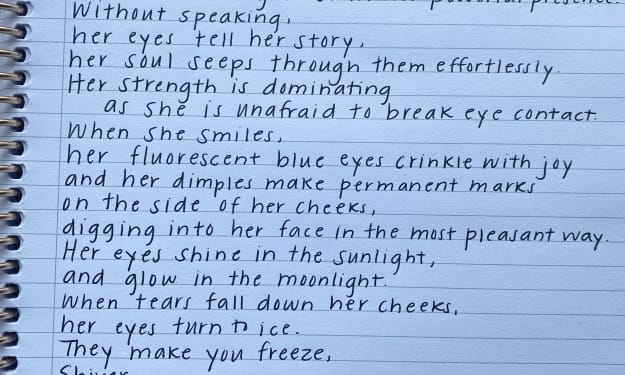 Without speaking,
her eyes tell her story,
her soul seeps through them effortlessly.
Her strength is dominating
as she is unafraid to break eye contact.
When she smiles,
her fluorescent blue eyes crinkle with joy
and her dimples make permanent marks
on the side of her cheeks,
digging into her face in the most pleasant way.
Her eyes shine in the sunlight,
and glow in the moonlight.
When tears fall down her cheeks,
her eyes turn to ice.
They make you freeze,